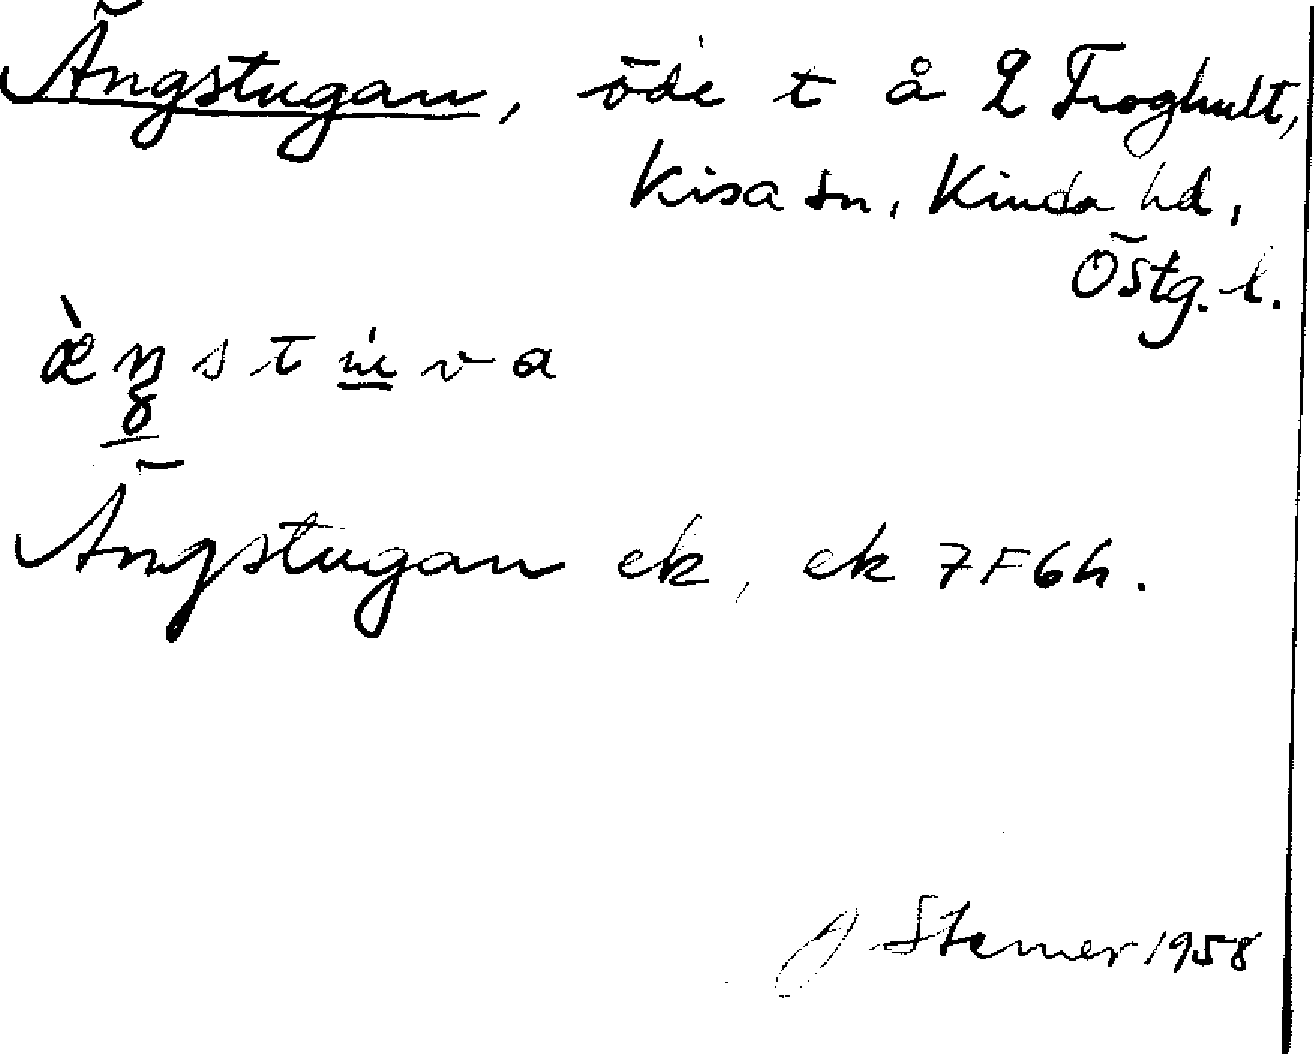 Ängstugan, öde t å 2 Froghult,
Kisa sn, Kinda hd,
Östg. l.
Ängstugan ek, ek 7F6h.
J Stenner 1958